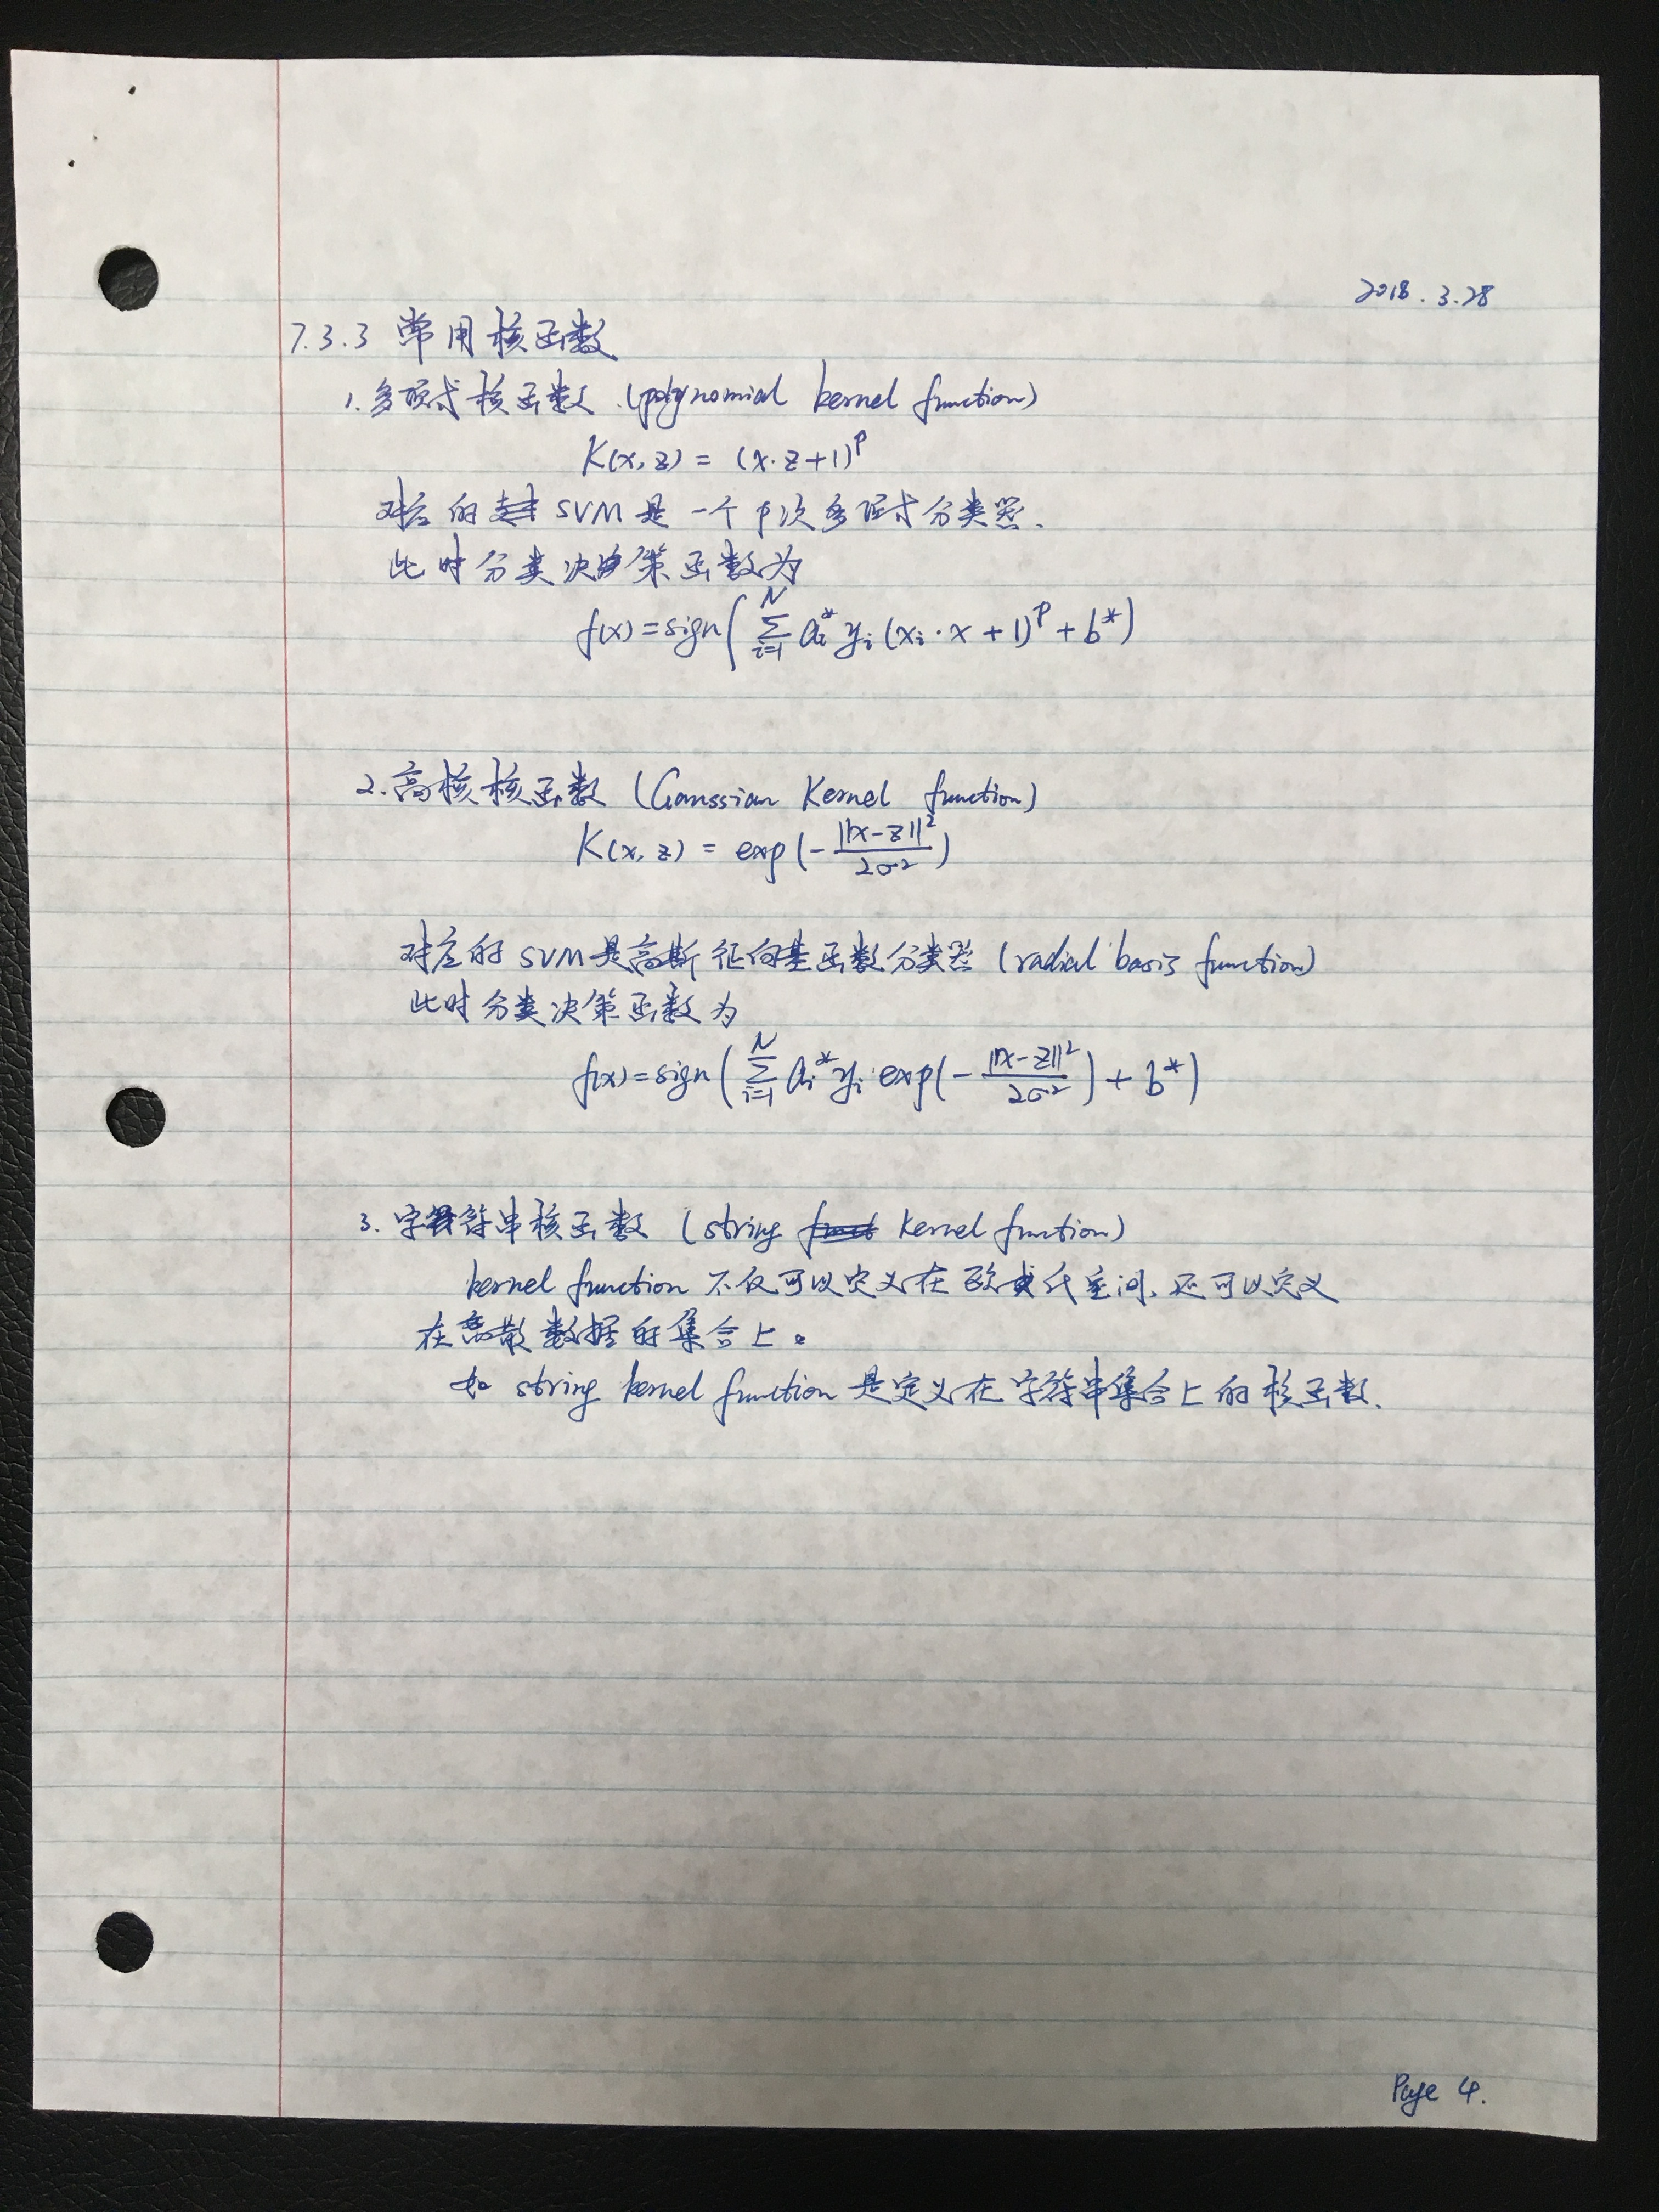 2018.3.28
7.3.3 常用核函数
1. 多项式核函数 (polynomial kernel function)
K(x, z) = (x·z+1)^p
对应的 SVM是一个p次多项式分类器.
此时分类决策函数为
f(x)=sign(∑_{i=1}^{N} a_i^* y_i (x_i·x+1)^p + b^*)
2. 高核核函数 (Gaussian Kernel function)
K(x, z) = exp(-\frac{||x-z||^2}{2σ^2})
对应的SVM是高斯径向基函数分类器 (radial basis function)
此时分类决策函数为
f(x)=sign(∑_{i=1}^{N} a_i^* y_i exp(-\frac{||x-z||^2}{2σ^2}) + b^*)
3. 字符串核函数 (string kernel function)
kernel function 不仅可以定义在欧式空间, 还可以定义
在离散数据的集合上。
如 string kernel function 是定义在字符串集合上的核函数.
Page 4.